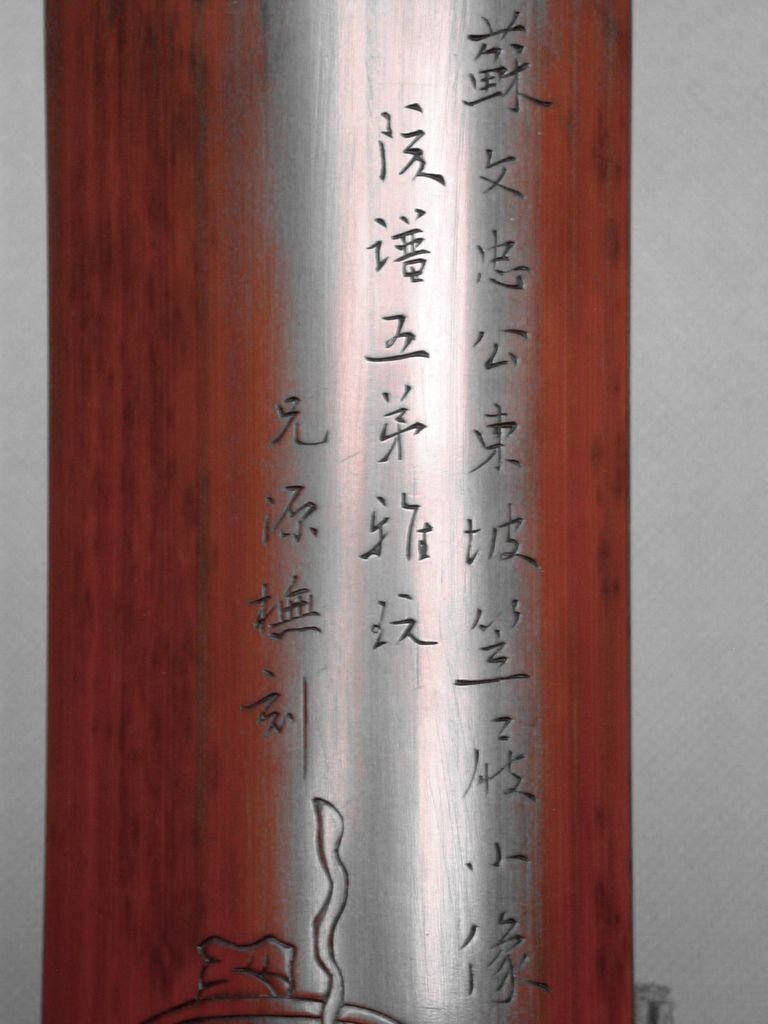 蘇文忠公東坡笠屐小像
譜五弟雅玩
兄源橅刻